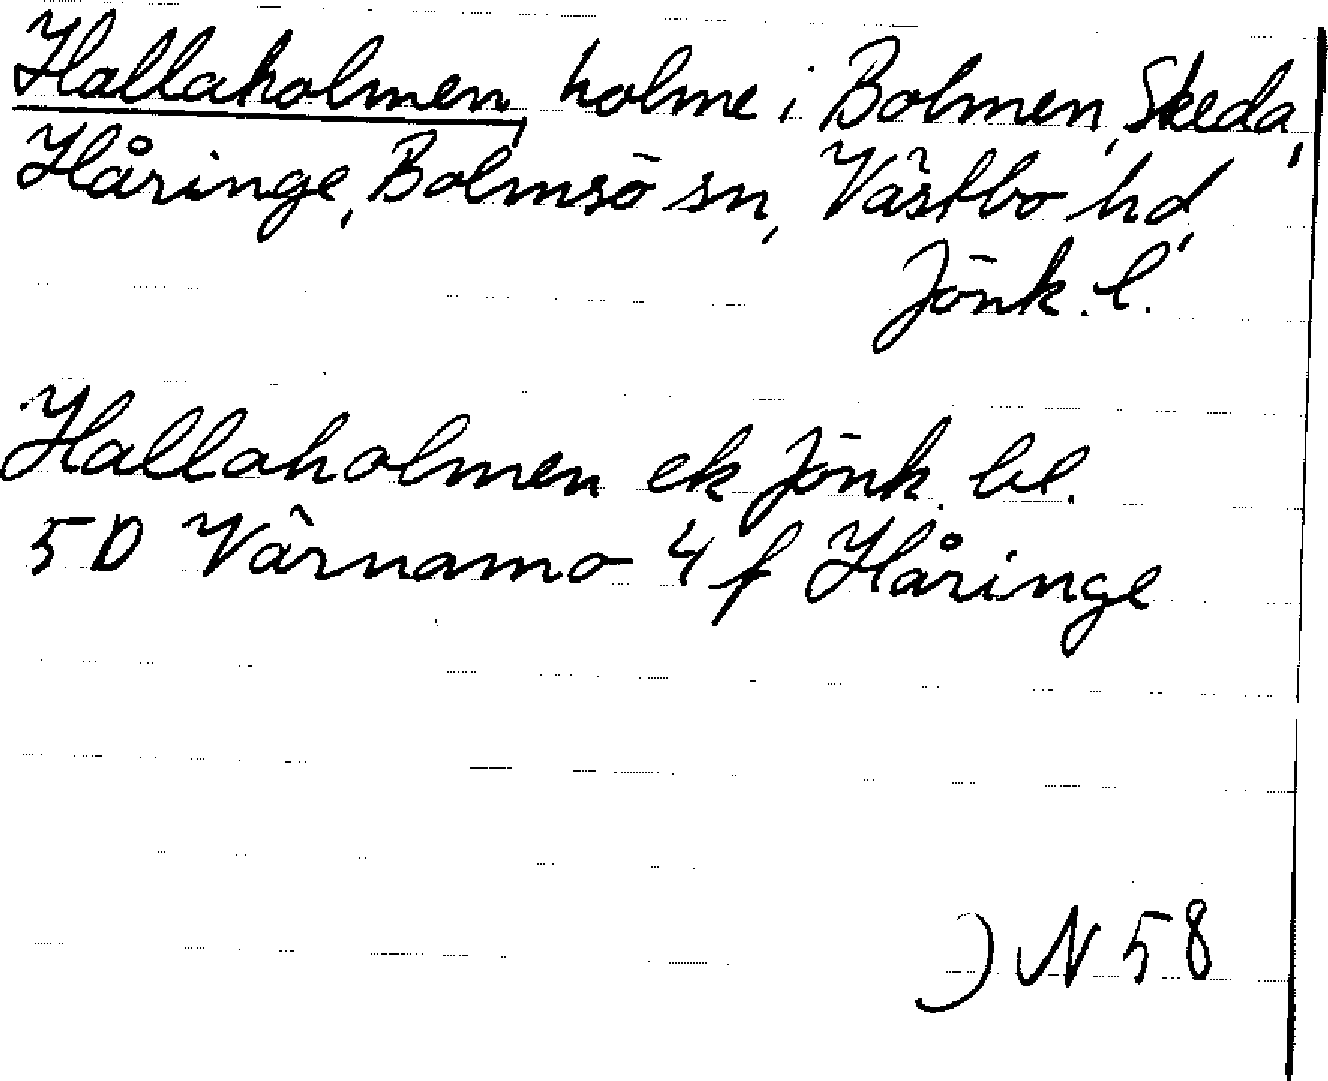 Hallaholmen, holme i Bolmen, Skeda,
Håringe, Bolmsö sn, Västbo hd,
Jönk. l.
Hallaholmen ek Jönk. bl.
5D Värnamo 4 f Håringe
JN 58